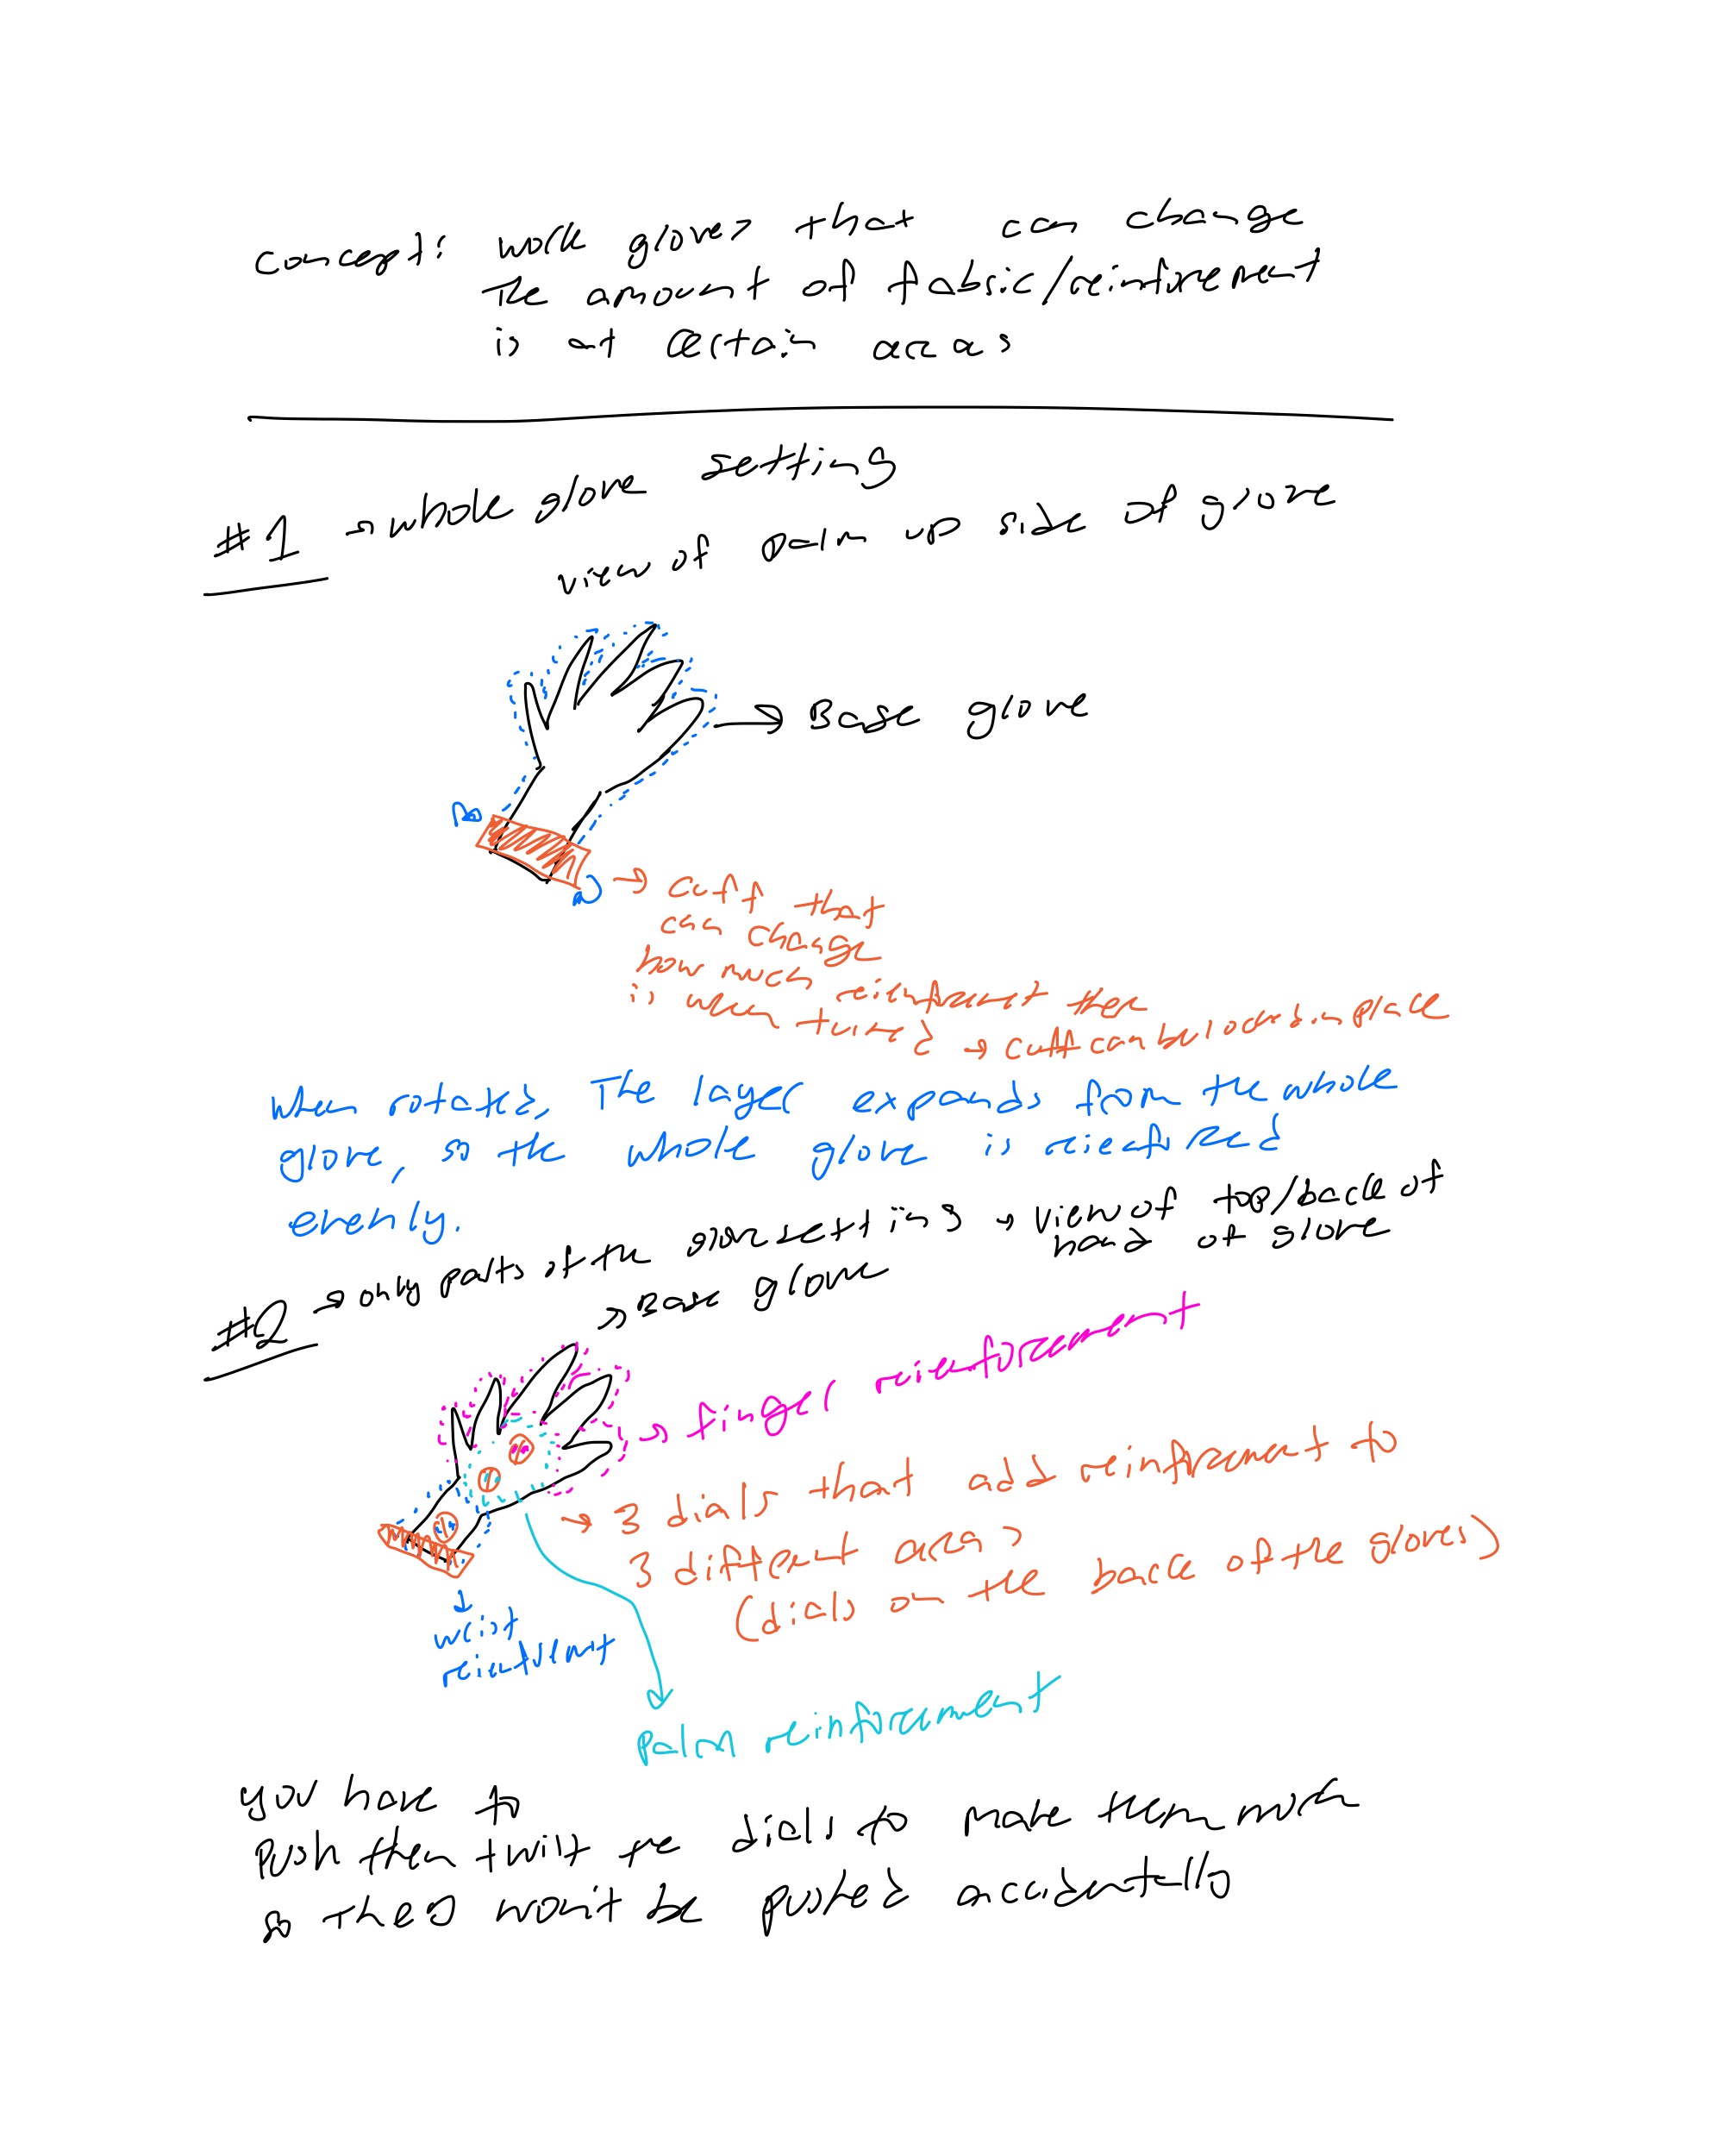 concept: work gloves that can change
the amount of fabric/reinforement
is at certain areas
#1 → whole glove setting
view of palm up side of glove
→ Base glove
→ cuff that
can change
how much
reinforment there
is when turned → cuff can be locked in place
when rotated, The layer expands from the whole
glove, so the whole glove is
evenly.
#2 → only parts of the glove settings → view of top/back of
hand of glove
→ Base glove
→ finger reienforcement
→ 3 dials that add reinforcement to
3 different areas
(dials on the back of the gloves)
wrist
palm reinforcement
you have to
push then twist the dials to make them work
so they won't be pushed accidentally